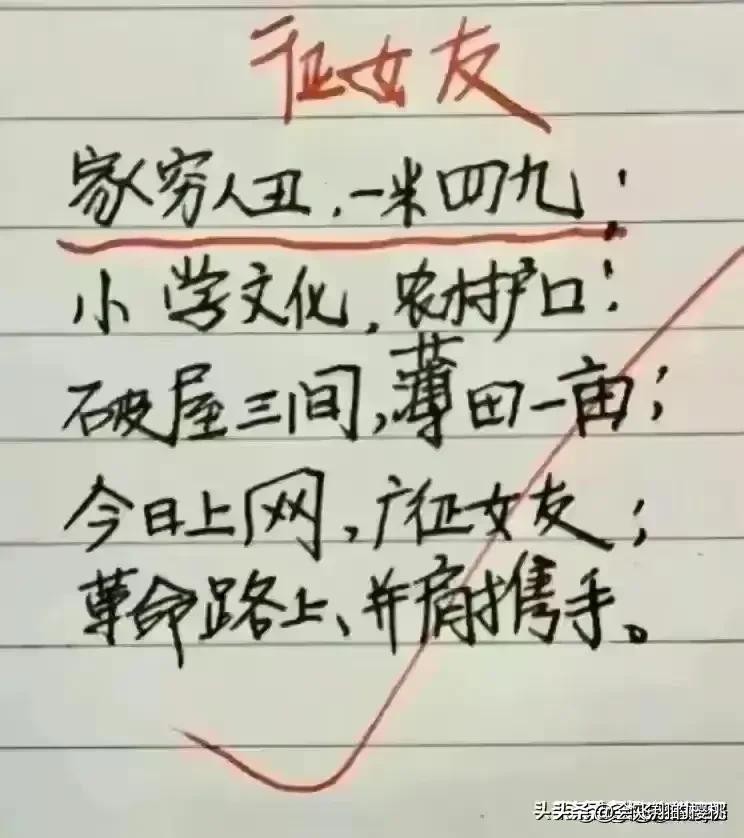 征女友
家穷人丑，一米四九；
小学文化，农村户口；
破屋三间，薄田一亩；
今日上网，广征女友；
革命路上、并肩携手。
头头条